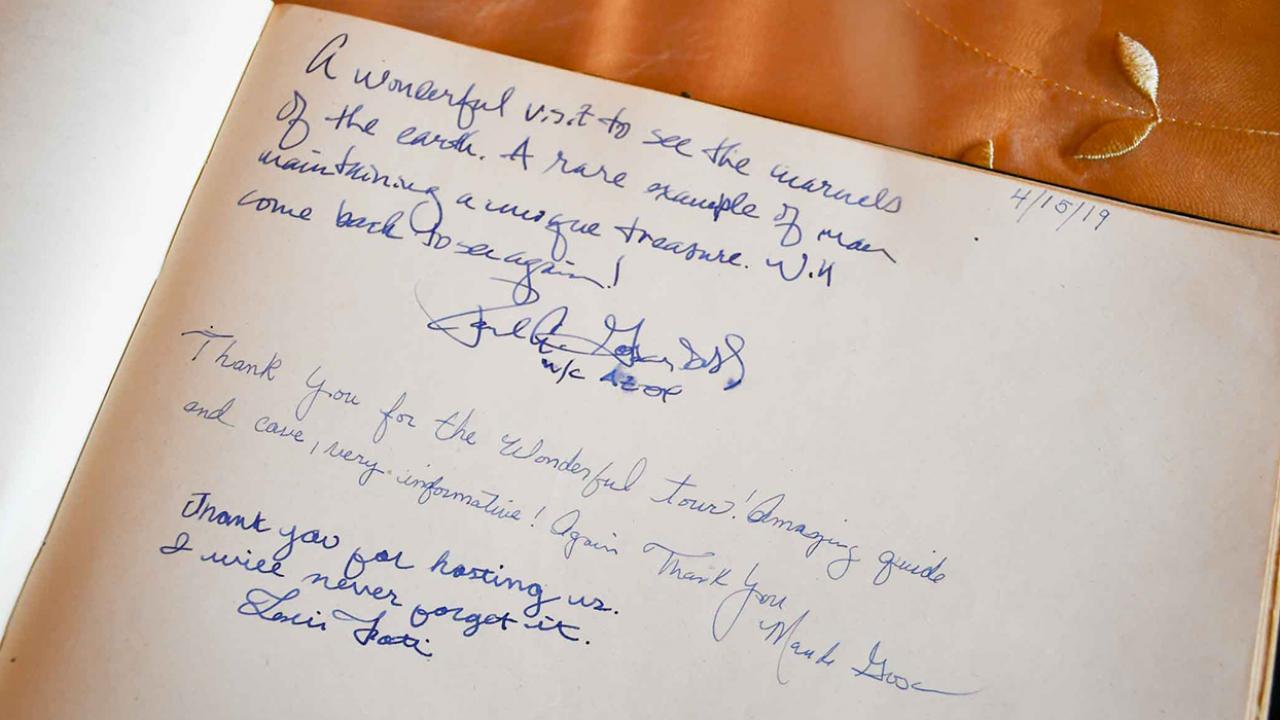 A wonderful visit to see the marvels
4/15/19
of the earth. A rare example of man
maintaining a unique treasure. Will
come back to see again!
Paul A. Gosar DDS
M/C AZ04
Thank you for the wonderful tour! Amazing guide
and cave, very informative! Again Thank You
Maude Gosar
Thank you for hosting us.
I will never forget it.